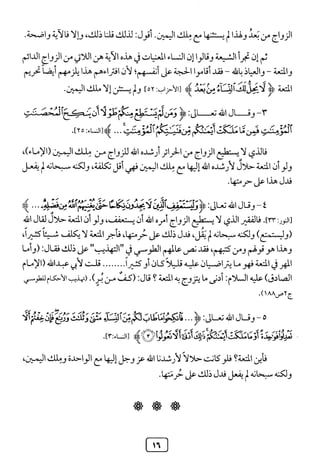 الزواج من بَعدُ ولهذا لم يستثنها مع مِلك اليمين. أقول: لذلك قلنا ذلك، وإلا فالآية واضحة.
ثم إن تجرأ الشيعة وقالوا إن النساء المعنيات في هذه الآية هن اللاتي من الزواج الدائم
والمتعة - والعياذ بالله - فقد أقاموا الحجة على أنفسهم؛ لأن افتراءهم هذا يلزمهم أيضاً تحريم
المتعة ﴿ لَّا يَحِلُّ لَكَ ٱلنِّسَآءُ مِنۢ بَعْدُ ﴾ [الأحزاب: ٥٢] ولم يستثن إلا ملك اليمين.
٣- وقال الله تعالى: ﴿ وَمَن لَّمْ يَسْتَطِعْ مِنكُمْ طَوْلًا أَن يَنكِحَ ٱلْمُحْصَنَٰتِ
ٱلْمُؤْمِنَٰتِ فَمِن مَّا مَلَكَتْ أَيْمَٰنُكُم مِّن فَتَيَٰتِكُمُ ٱلْمُؤْمِنَٰتِ ... ﴾ [النساء: ٢٥].
فالذي لا يستطيع الزواج من الحرائر أرشده الله للزواج من مِلك اليمين (الإماء)،
ولو أن المتعة حلال لأرشده الله إليها مع مِلك اليمين فهي أقل تكلفة، ولكنه سبحانه لم يفعل
فدل هذا على حرمتها.
٤- وقال الله تعالى: ﴿ وَلْيَسْتَعْفِفِ ٱلَّذِينَ لَا يَجِدُونَ نِكَاحًا حَتَّىٰ يُغْنِيَهُمُ ٱللَّهُ مِن فَضْلِهِۦ .... ﴾
[النور: ٣٣]. فالفقير الذي لا يستطيع الزواج أمره الله أن يستعفف، ولو أن المتعة حلالٌ لقال الله
(وليستمتع) ولكنه سبحانه لم يقُل، فدل ذلك على حُرمتها، فأجر المتعة لا يكلف شيئاً كثيراً،
وهذا هو قولهم ومن كتبهم، فقد نص عالمهم الطوسي في "التهذيب" على ذلك فقال: (وأما
المهر في المتعة فهو ما يتراضيان عليه قليلاً كان أو كثيراً......... قلت لأبي عبدالله (الإمام
الصادق) عليه السلام: أدنى ما يتزوج به المتعة ؟ قال: (كفٌ من بُرٍ). (تهذيب الأحكام للطوسي
ج٢ص١٨٨).
٥- وقال الله تعالى: ﴿ ... فَٱنكِحُوا۟ مَا طَابَ لَكُم مِّنَ ٱلنِّسَآءِ مَثْنَىٰ وَثُلَٰثَ وَرُبَٰعَ فَإِنْ خِفْتُمْ أَلَّا
تَعْدِلُوا۟ فَوَٰحِدَةً أَوْ مَا مَلَكَتْ أَيْمَٰنُكُمْ ذَٰلِكَ أَدْنَىٰٓ أَلَّا تَعُولُوا۟ ٣ ﴾ [النساء: ٣].
فأين المتعة؟ فلو كانت حلالاً لأرشدنا الله عز وجل إليها مع الواحدة ومِلك اليمين،
ولكنه سبحانه لم يفعل فدل ذلك على حُرمتها.
١٦